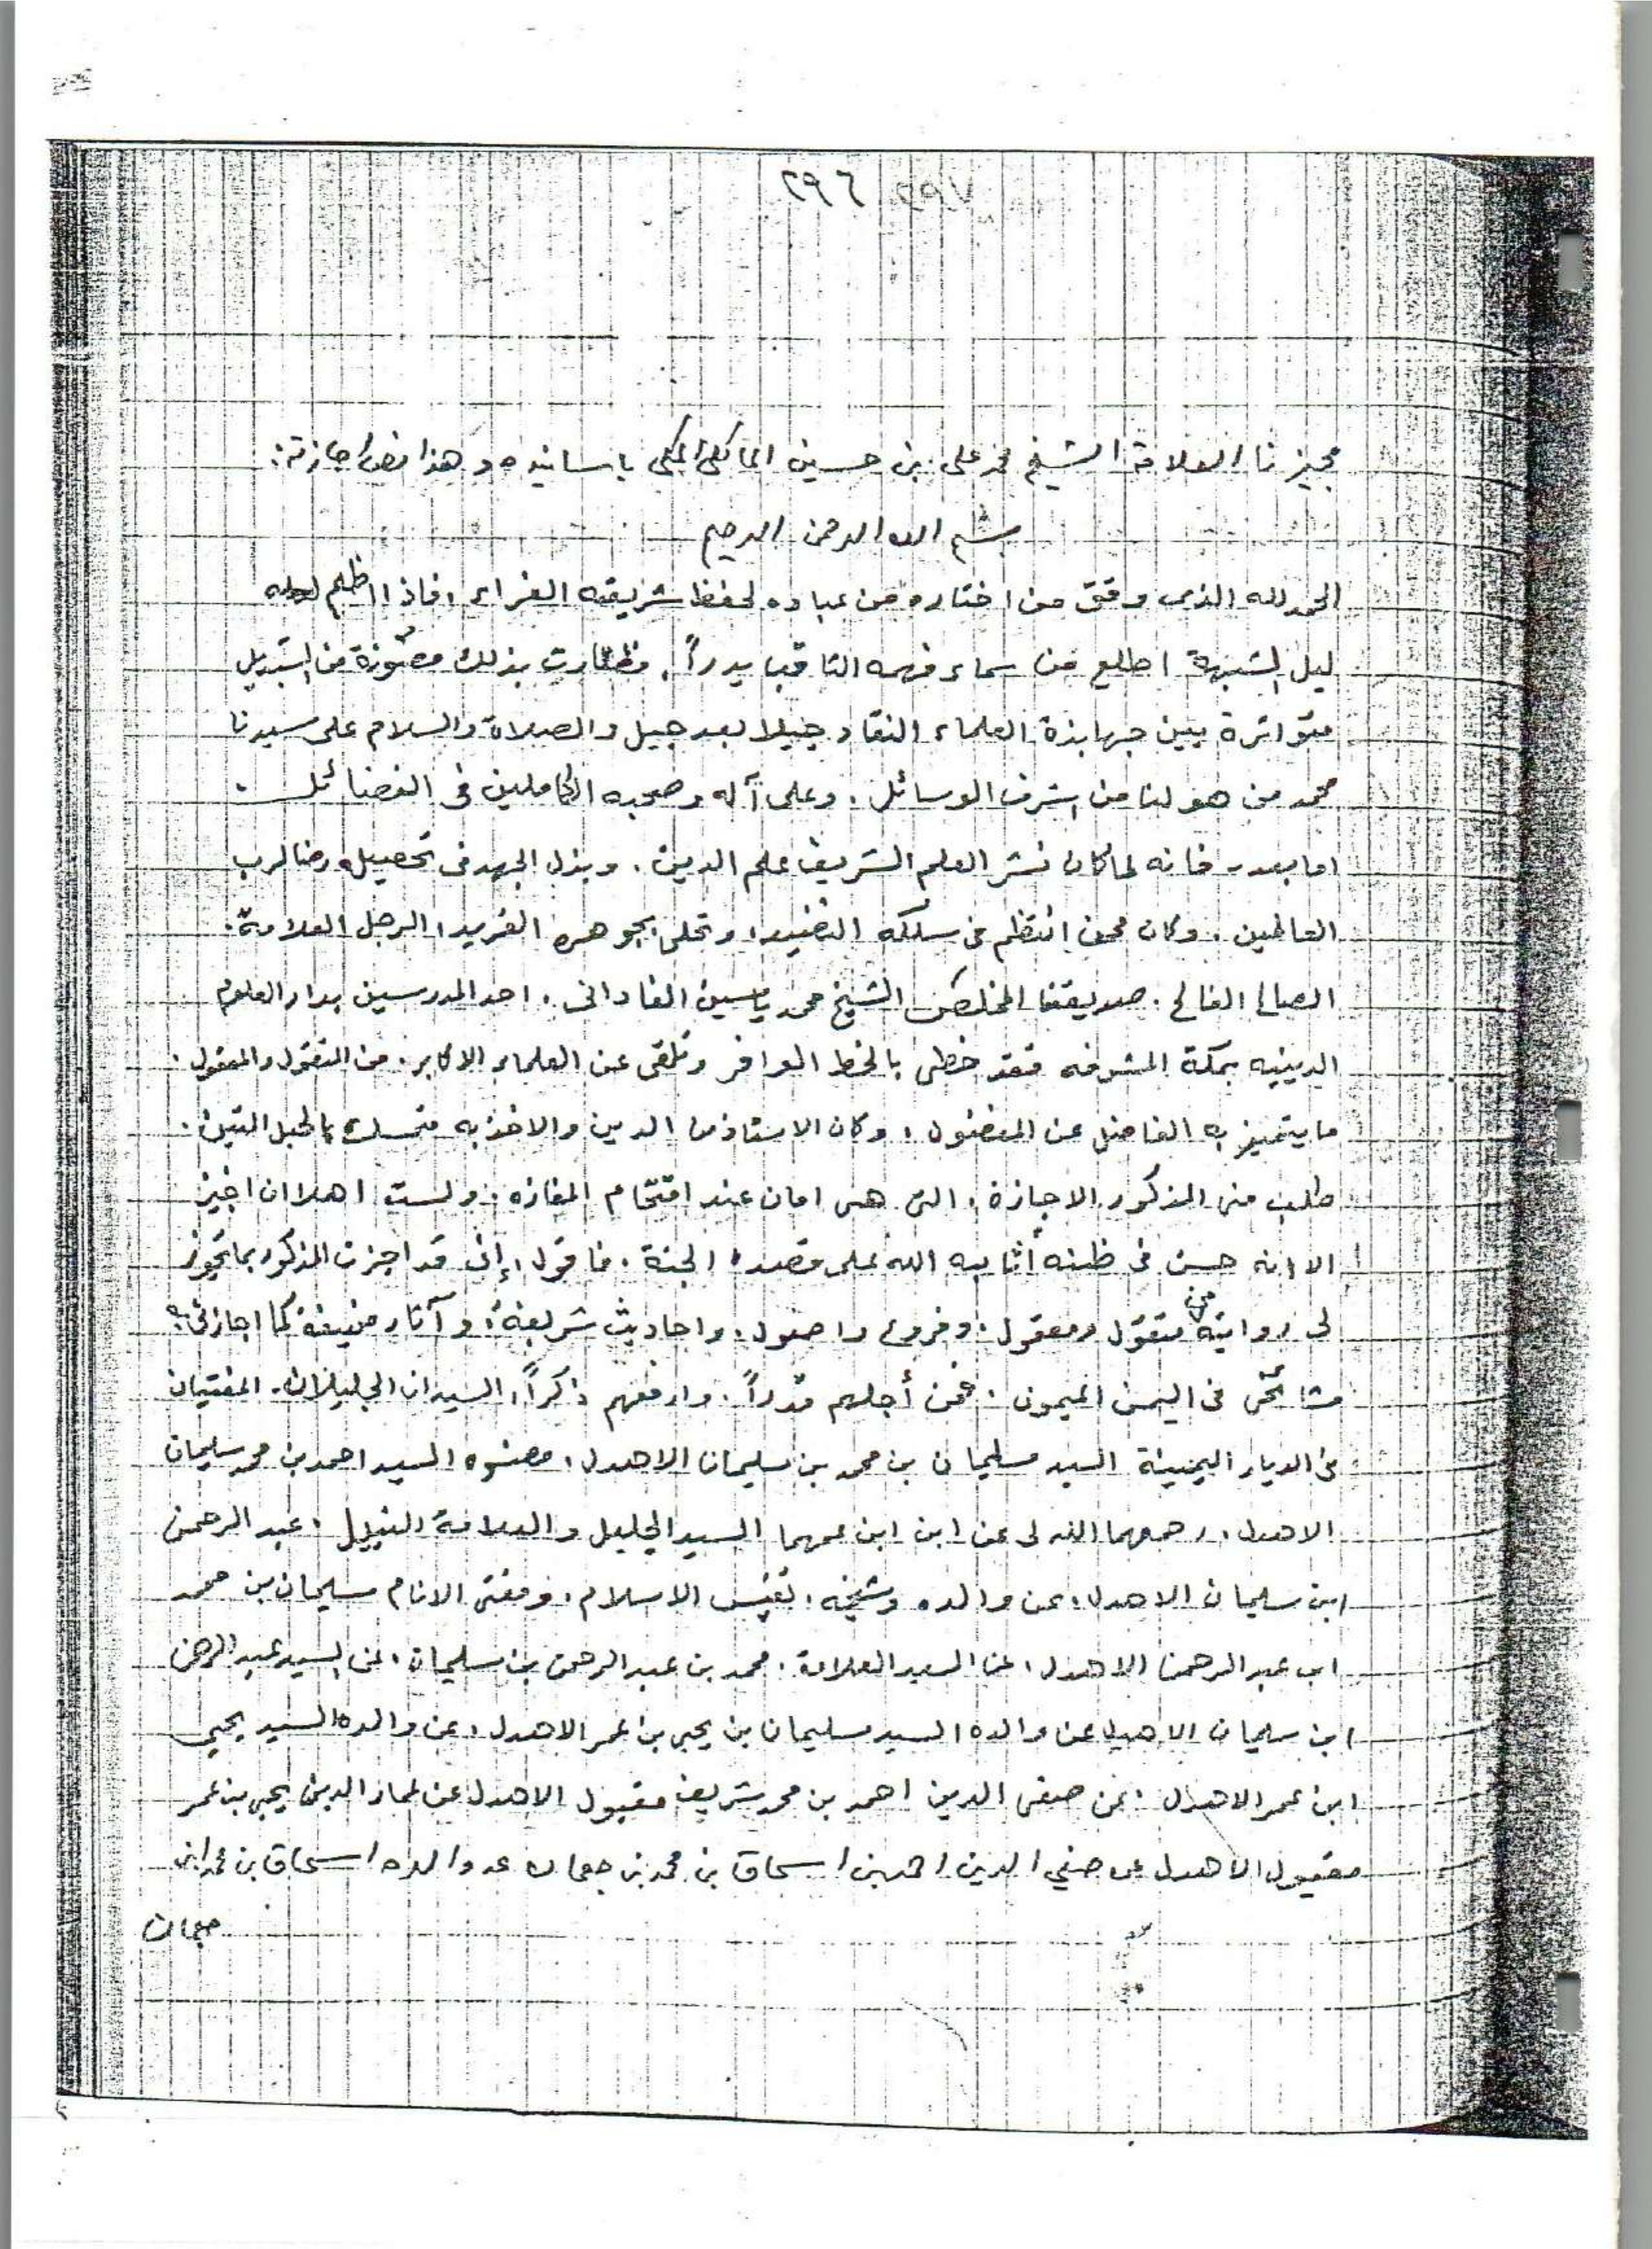 ٢٩٦ ٢٩٧
مجيزنا العلامة الشيخ محمد علي بن حسين المالكي المكي باسانيده وهذا نص اجازته:
بسم الله الرحمن الرحيم
الحمد لله الذى وفق من اختاره من عباده لحفظ شريعته الغراء، فاذا اظلم
ليل الشبهة اطلع من سماء فهمه الثاقب بدراً. بذلك مصونة من التبديل
متواترة بين جهابذة العلماء النقاد جيلا بعد جيل والصلاة والسلام على سيدنا
محمد من هو لنا من اشرف الوسائل. وعلى آله وصحبه الكاملين فى الفضائل.
اما بعد - فانه لما كان نشر العلم الشريف علم الدين. وبذل الجهد فى تحصيله رضا لرب
العالمين. وكان ممن انتظم فى سلكه النضيد، وتحلى بجوهره الفريد، الرجل العلامة.
الصالح الفالح. صديقنا المخلص الشيخ محمد ياسين الفادانى. احد المدرسين بدار العلوم
الدينيه بمكة المشرفه فقد حظى بالحظ الوافر وتلقى عن العلماء الاكابر. من المنقول والمعقول.
ما يتميز به الفاضل عن المفضول، وكان الاسناد من الدين والاخذ به متمسك بالحبل المتين.
طلب منى المذكور الاجازة، التى هى امان عند اقتحام المفازه. ولست اهلا ان اجيز
الا انه حسن فى ظنه أثابه الله على قصده الجنة. فاقول، إنى قد اجزت المذكور بما تجوز
لى روايته من منقول ومعقول. وفروع واصول. واحاديث شريفة، وآثار منيفة كما اجازنى به
مشائخى فى اليمن الميمون. فمن أجلهم قدراً. وارفعهم ذكراً، السيدان الجليلان. المفتيان
فى الديار اليمنية السيد سليمان بن محمد بن سليمان الاهدل، وصنوه السيد احمد بن محمد سليمان
الاهدل. رحمهما الله لى عن ابن ابن عمهما السيد الجليل والعلامة النبيل. عبد الرحمن
ابن سليمان الاهدل، عن والده وشيخه، نفيس الاسلام، ومفتى الانام سليمان بن محمد
ابن عبد الرحمن الاهدل، عن السيد العلامة. محمد بن عبد الرحمن بن سليمان، عن السيد عبد الرحمن
ابن سليمان الاهدل عن والده السيد سليمان بن يحيى بن عمر الاهدل، عن والده السيد يحيى
ابن عمر الاهدل، عن صفى الدين احمد بن محمد شريف مقبول الاهدل عن عماد الدين يحيى بن عمر
مقبول الاهدل عن صفي الدين احمد بن اسحاق بن محمد بن جعمان عن والده اسحاق بن محمد ابن
جعمان